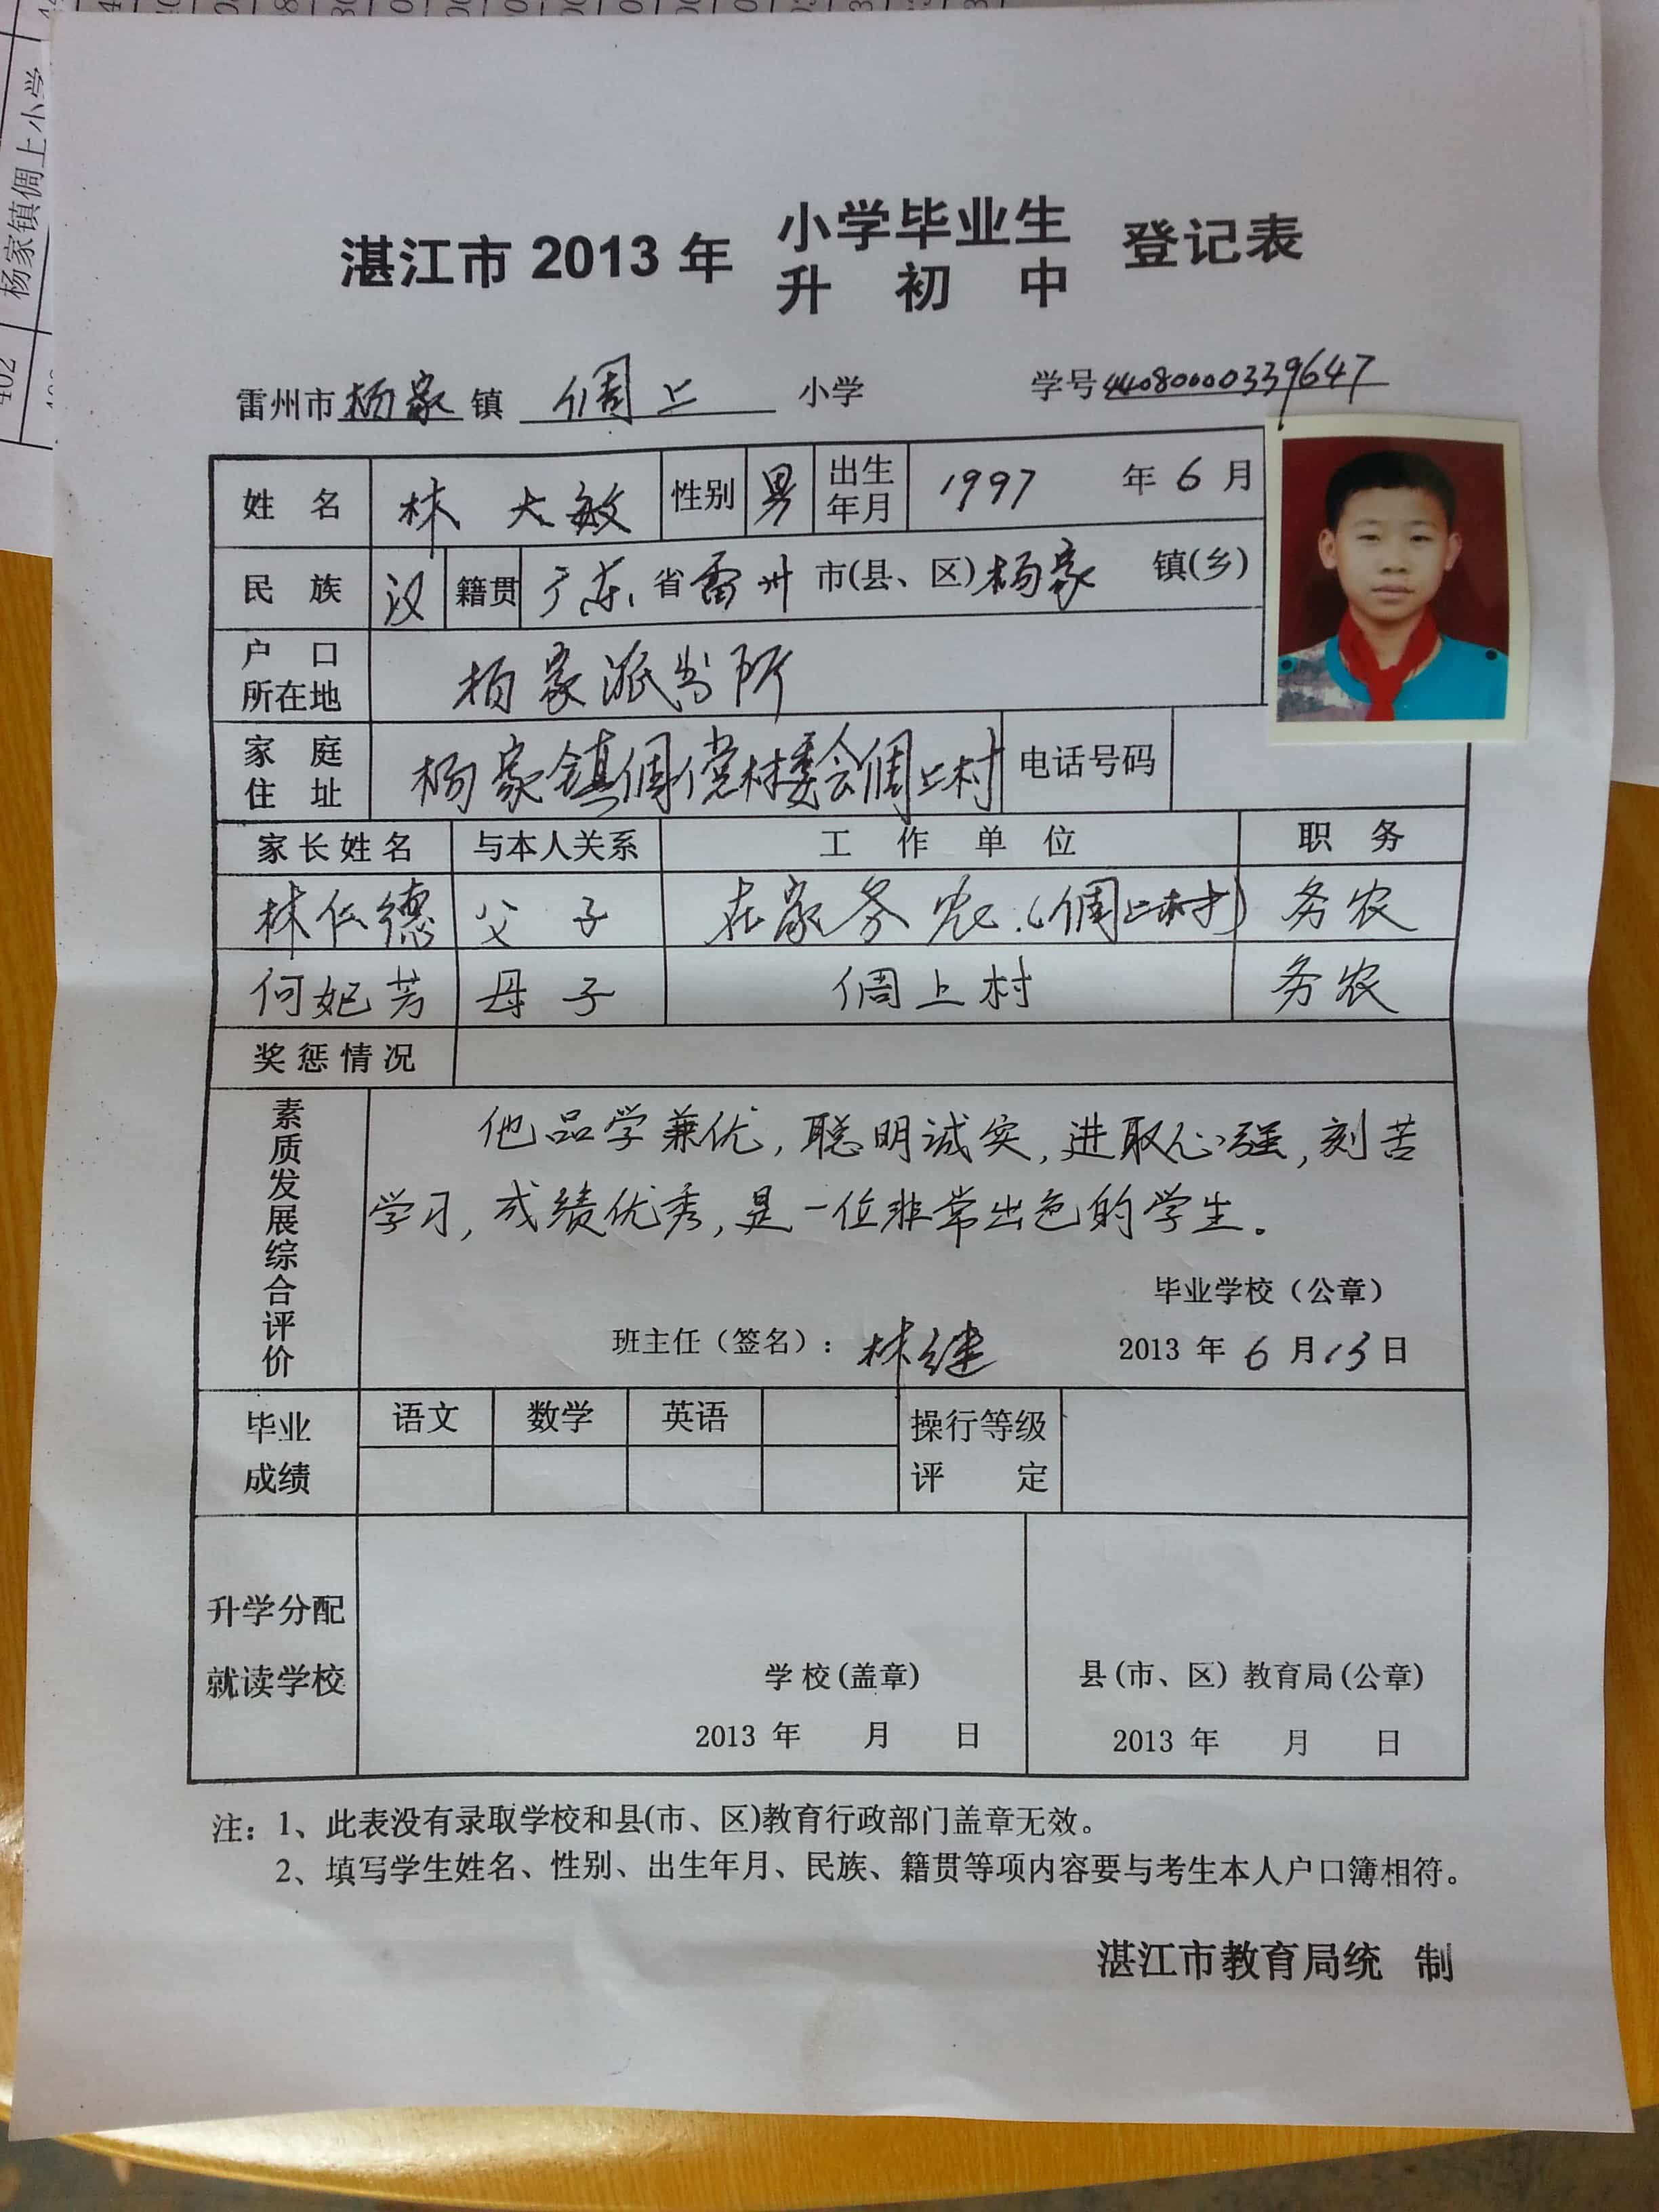 杨家镇倜上小学
402
湛江市 2013 年 小学毕业生 登记表
升 初 中
雷州市杨家镇 倜上 小学 学号4408000033 9647
姓 名 林大敏 性别 男 出生年月 1997 年 6 月
民 族 汉 籍贯 广东省雷州市(县、区)杨家 镇(乡)
户 口 所在地 杨家派出所
家 庭 住 址 杨家镇倜傥村委会倜上村 电话号码
家长姓名 与本人关系 工 作 单 位 职 务
林仁德 父 子 在家务农.(倜上村) 务农
何妃芳 母 子 倜上村 务农
奖惩情况
素质发展综合评价
他品学兼优,聪明诚实,进取心强,刻苦
学习,成绩优秀,是一位非常出色的学生。
毕业学校（公章）
班主任（签名）: 林继 2013 年 6 月 13 日
毕业成绩 语文 数学 英语 操行等级评 定
升学分配
就读学校
学校(盖章) 县(市、区) 教育局(公章)
2013 年 月 日 2013 年 月 日
注: 1、此表没有录取学校和县(市、区)教育行政部门盖章无效。
2、填写学生姓名、性别、出生年月、民族、籍贯等项内容要与考生本人户口簿相符。
湛江市教育局统 制